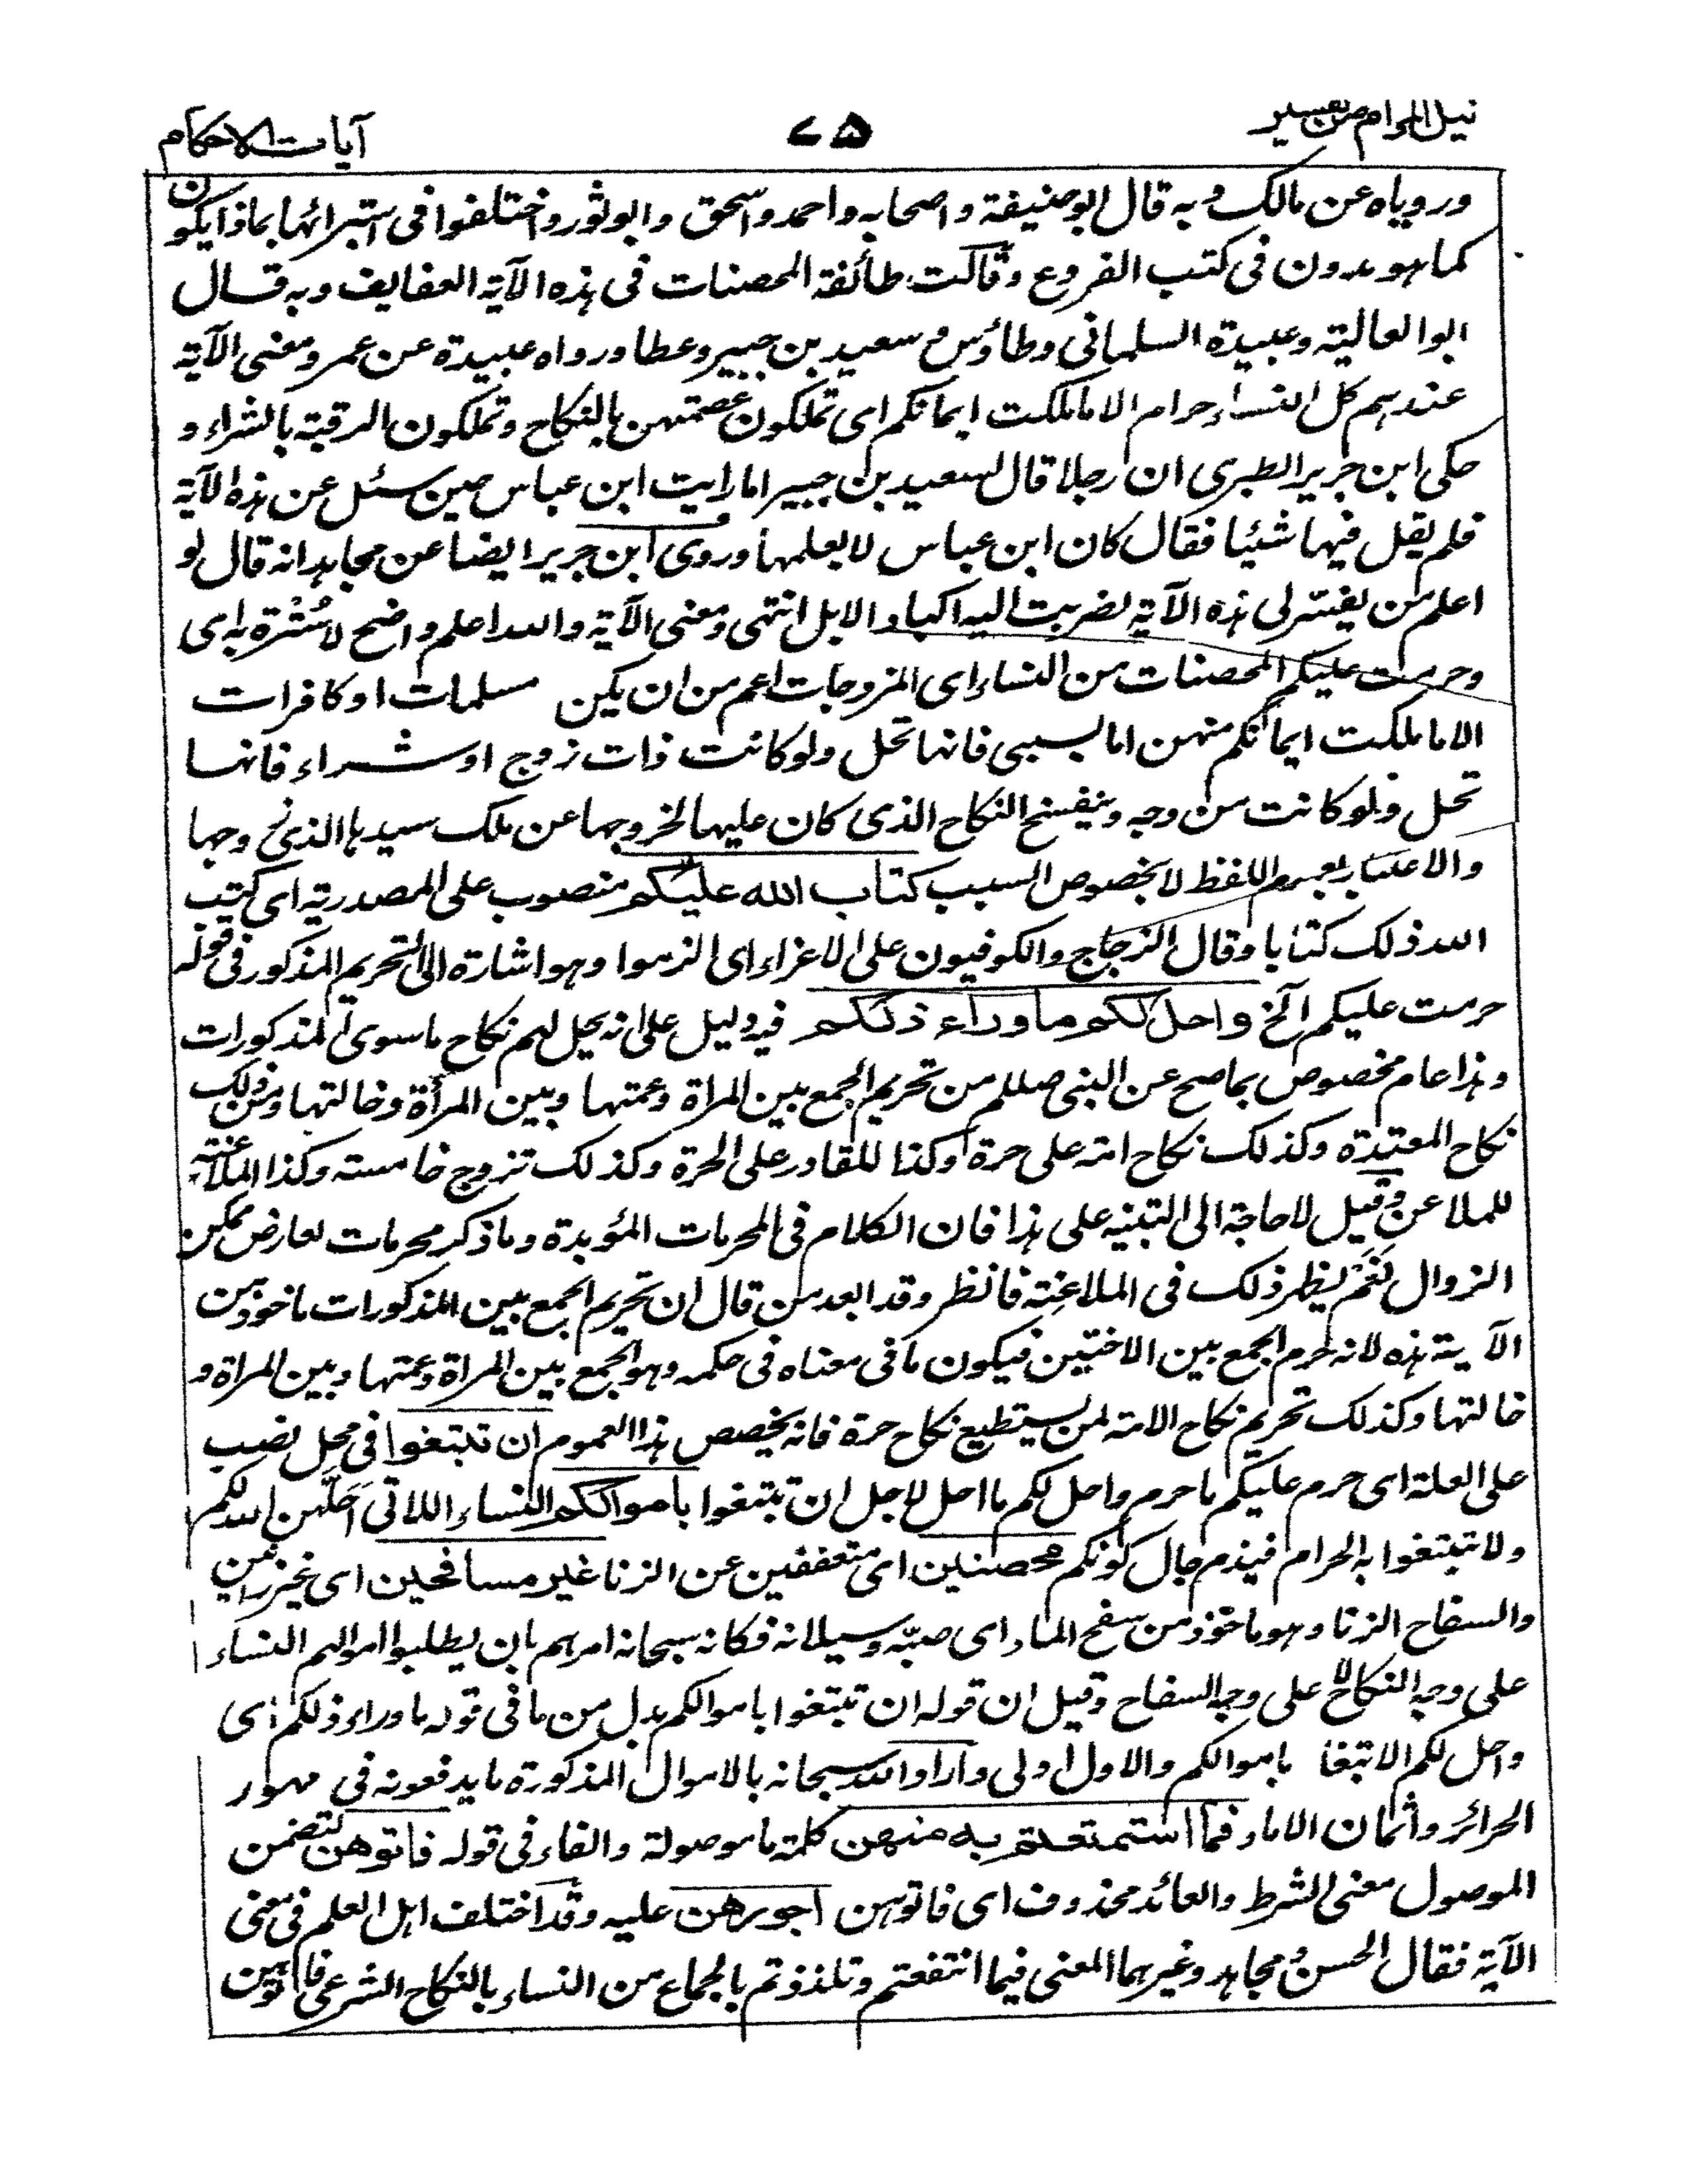 نيل المرام من تفسير
٧٥
آيات الاحكام
وروياه عن مالك وبه قال ابوحنيفة واصحابه واحمد واسحق وابوثور واختلفوا فى استبرائها بماذا يكون
كما هو مدون فى كتب الفروع وقالت طائفة المحصنات فى هذه الآية العفايف وبه قال
ابوالعالية وعبيدة السلمانى وطاؤس وسعيد بن جبير وعطا ورواه عبيدة عن عمر ومعنى الآية
عندهم كل النساء حرام الا ما ملكت ايمانكم اى تملكون عصمتهن بالنكاح وتملكون الرقبة بالشراء و
حكى ابن جرير الطبرى ان رجلا قال لسعيد بن جبير اما رايت ابن عباس حين سئل عن هذه الآية
فلم يقل فيها شيئا فقال كان ابن عباس لا يعلمها وروى ابن جرير ايضا عن مجاهد انه قال لو
اعلم من يفسر لى هذه الآية لضربت اليه اكباد الابل انتهى ومعنى الآية والله اعلم واضح لا سترة به اى
وحرمت عليكم المحصنات من النساء اى المزوجات اعم من ان يكن مسلمات او كافرات
الا ما ملكت ايمانكم منهن اما بسبى فانها تحل ولو كانت ذات زوج او شراء فانها
تحل ولو كانت مزوجه وينفسخ النكاح الذى كان عليها لخروجها عن ملك سيدها الذى زوجها
والاعتبار بعموم اللفظ لا بخصوص السبب كتاب الله عليكم منصوب على المصدرية اى كتب
الله ذلك كتابا وقال الزجاج والكوفيون على الاغراء اى الزموا وهو اشارة الى التحريم المذكور فى قوله
حرمت عليكم الخ واحل لكم ما وراء ذلكم فيه دليل على انه يحل لهم نكاح ما سوى المذكورات
وهذا عام مخصوص بما صح عن النبى صللم من تحريم الجمع بين المراة وعمتها وبين المرأة وخالتها ومن ذلك
نكاح المعتدة وكذلك نكاح امته على حرة وكذا للقادر على الحرة وكذلك تزوج خامسته وكذا الملاعنة
للملاعن وقيل لا حاجة الى التنبيه على هذا فان الكلام فى المحرمات المؤبدة وما ذكر محرمات لعارض ممكن
الزوال نعم يظهر ذلك فى الملاعنة فانظر وقد ابعد من قال ان تحريم الجمع بين المذكورات ماخوذ من
الآية هذه لانه حرم الجمع بين الاختين فيكون ما فى معناه فى حكمه وهو الجمع بين المراة وعمتها وبين المراة و
خالتها وكذلك تحريم نكاح الامة لمن يستطيع نكاح حرة فانه يخصص هذا العموم ان تبتغوا فى محل نصب
على العلة اى حرم عليكم ما حرم واحل لكم ما احل لاجل ان تبتغوا باموالكم النساء اللاتى احلهن الله لكم
ولا تبتغوا به الحرام فيذهب حال كونكم محصنين اى متعففين عن الزنا غير مسافحين اى غير زانين
والسفاح الزنا وهو ماخوذ من سفح الماء اى صبه وسيلانه فكانه سبحانه امرهم بان يطلبوا باموالهم النساء
على وجه النكاح لا على وجه السفاح وقيل ان قوله ان تبتغوا باموالكم بدل من ما فى قوله ما وراء ذلكم اى
واحل لكم الابتغا باموالكم والاول اولى واراد الله سبحانه بالاموال المذكورة ما يدفعونه فى مهور
الحرائر واثمان الاماء فما استمتعتم به منهن كلمة ما موصولة والفاء فى قوله فاتوهن لتضمن
الموصول معنى الشرط والعائد محذوف اى فاتوهن اجورهن عليه وقد اختلف اهل العلم فى معنى
الآية فقال الحسن ومجاهد وغيرهما المعنى فيما انتفعتم وتلذذتم بالجماع من النساء بالنكاح الشرعى فاتوهن